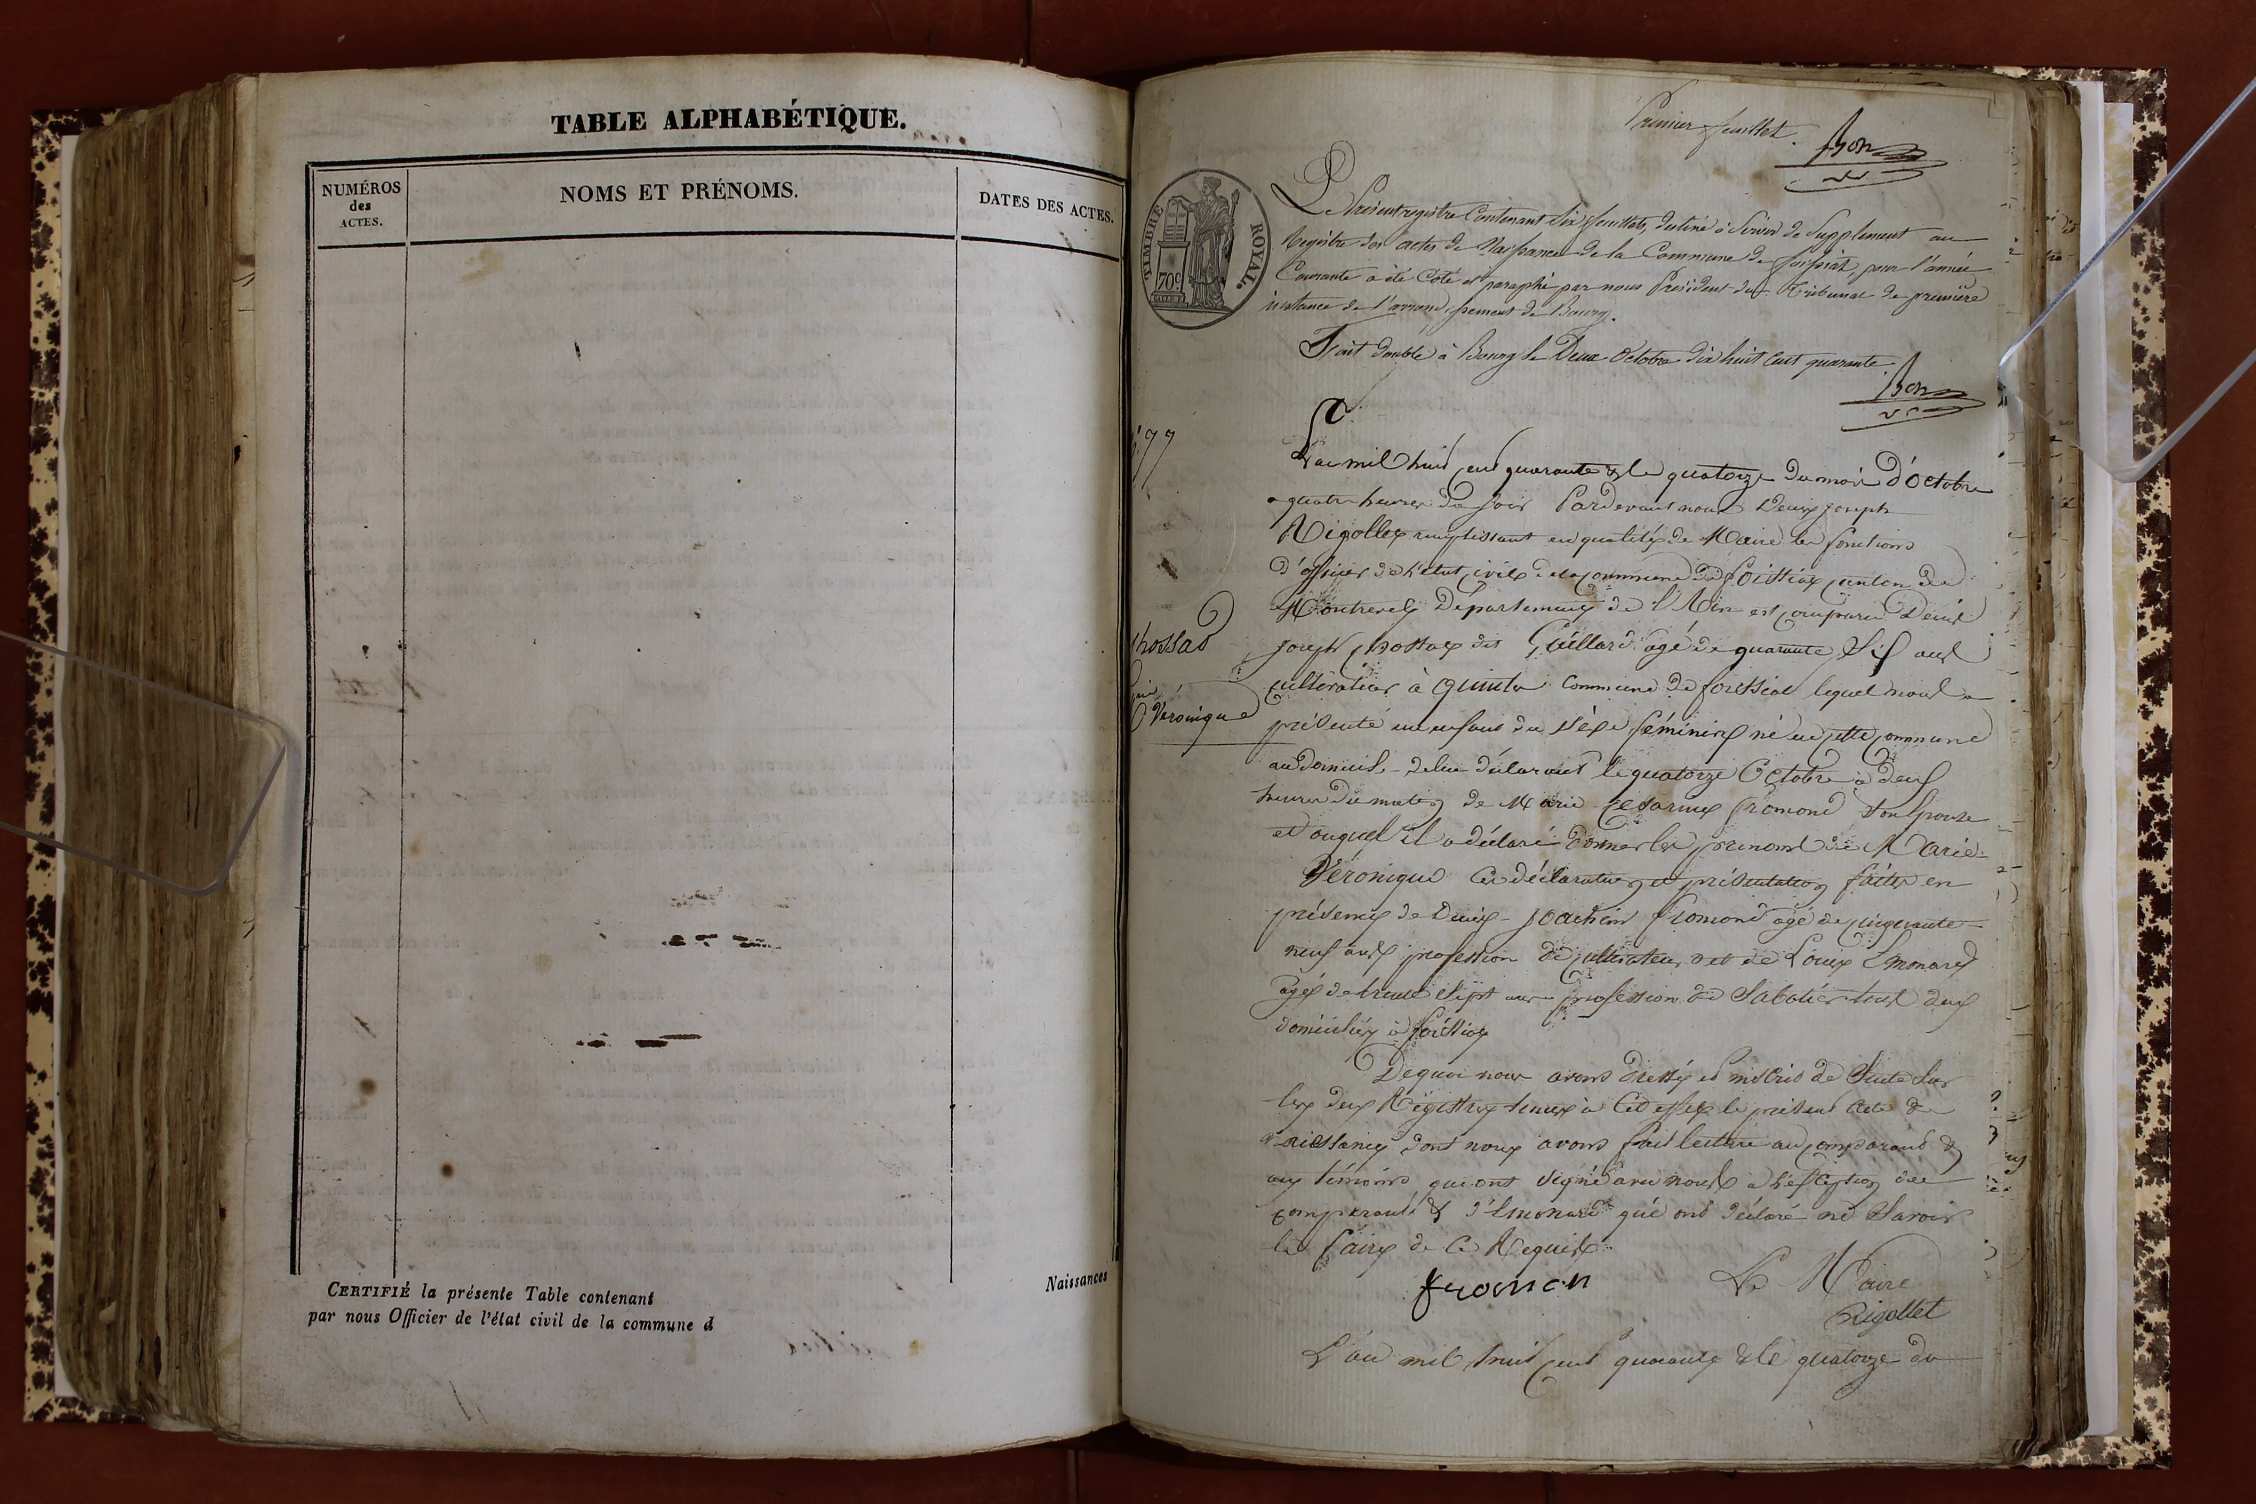 TABLE ALPHABÉTIQUE.
NUMÉROS
des
ACTES.
NOMS ET PRÉNOMS.
DATES DES ACTES.
CERTIFIÉ la présente Table contenant
Naissances
par nous Officier de l'état civil de la commune d
Premier feuillet.
Bon
TIMBRE ROYAL.
70c
Le Présent registre Contenant Six feuillets, destiné à Servir de Supplement au
Registre des actes de Naissance de la Commune de foissiat, pour l'année
Courante a été Coté et paraphé par nous President du Tribunal de première
instance de l'arrondissement de Bourg.
Fait double à Bourg le Deux Octobre dix huit cent quarante.
Bon
77
L'an mil huit cent quarante & le quatorze du mois D'Octobre
a quatre heures du soir Pardevant nous Denis joseph
Rigollet remplissant en qualité de Maire les fonctions
D'officier de l'état civil de la commune de foissiat canton de
Montrevel Departement de l'Ain est comparu Denis
hossad
Véronique
joseph chossat dit Guillard agé de quarante Six ans
cultivateur à quinte commune de foissiat lequel nous a
présenté un enfant du sèxe féminin né en cette commune
au domicile de lui déclarant le quatorze Octobre à deux
heures du matin de Marie Cesarine fromond son Epouse
et auquel il a déclaré donner les prenoms de Marie
Véronique Ces déclaration et présentation faites en
présence de Denis joachim fromond agé de cinquante
neuf ans profession de cultivateur et de Louis Emonard
agé de trente sept ans profession de Sabotier tous deux
domiciliés à foissiat
Dequoi nous avons dressé et inscrit de Suite Sur
les deux Régistres tenus à Cet effet le présent acte de
naissance dont nous avons fait lecture au comparant &
aux témoins qui ont signé avec nous à l'éxception du
comparant & d'Emonard qui ont déclaré ne Savoir
le faire de Ce Requis
fromon
Le Maire
Rigollet
L'an mil huit cent quarante & le quatorze du